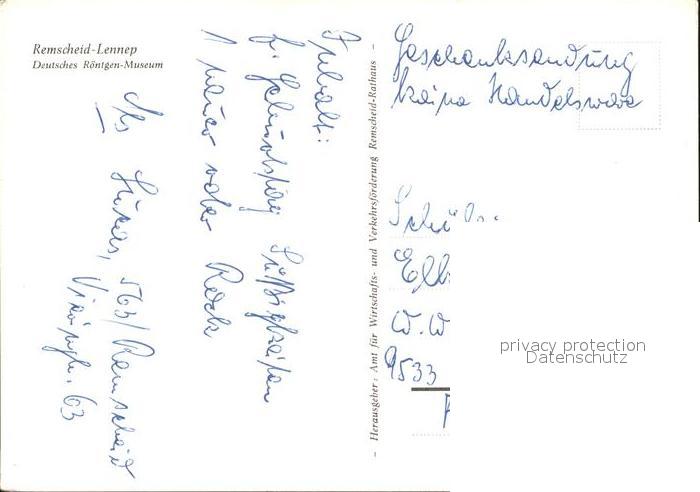 Remscheid-Lennep
Deutsches Röntgen-Museum
Inhalt:
f. Geburtstag Süßigkeiten
1 neuer roter Rock
563 / Remscheid
63
– Herausgeber: Amt für Wirtschafts- und Verkehrsförderung Remscheid-Rathaus –
Geschenksendung
keine Handelsware
W.W
9533
privacy protection
Datenschutz